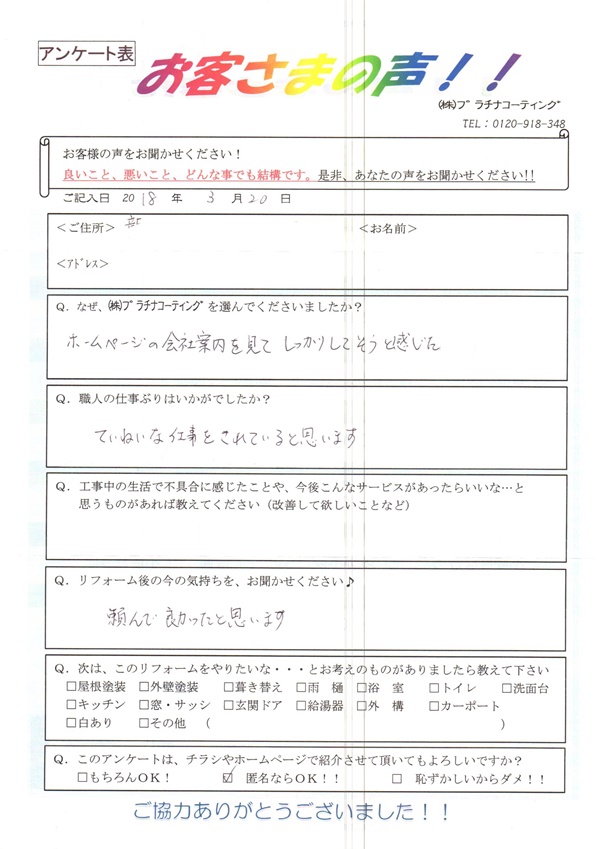 アンケート表
お客さまの声！！
㈱プラチナコーティング
TEL：0120-918-348
お客様の声をお聞かせください！
良いこと、悪いこと、どんな事でも結構です。是非、あなたの声をお聞かせください!!
ご記入日 2018 年 3 月 20 日
＜ご住所＞ ＜お名前＞
＜アドレス＞
Q．なぜ、㈱プラチナコーティングを選んでくださいましたか？
ホームページの会社案内を見て しっかりしてそうと感じた
Q．職人の仕事ぶりはいかがでしたか？
ていねいな仕事をされていると思います
Q．工事中の生活で不具合に感じたことや、今後こんなサービスがあったらいいな…と
思うものがあれば教えてください（改善して欲しいことなど）
Q．リフォーム後の今の気持ちを、お聞かせください♪
頼んで良かったと思います
Q．次は、このリフォームをやりたいな・・・とお考えのものがありましたら教えて下さい
□屋根塗装 □外壁塗装 □葺き替え □雨 樋 □浴 室 □トイレ □洗面台
□キッチン □窓・サッシ □玄関ドア □給湯器 □外 構 □カーポート
□白あり □その他 （ ）
Q．このアンケートは、チラシやホームページで紹介させて頂いてもよろしいですか？
□もちろんOK！ ☑ 匿名ならOK！！ □ 恥ずかしいからダメ！！
ご協力ありがとうございました！！